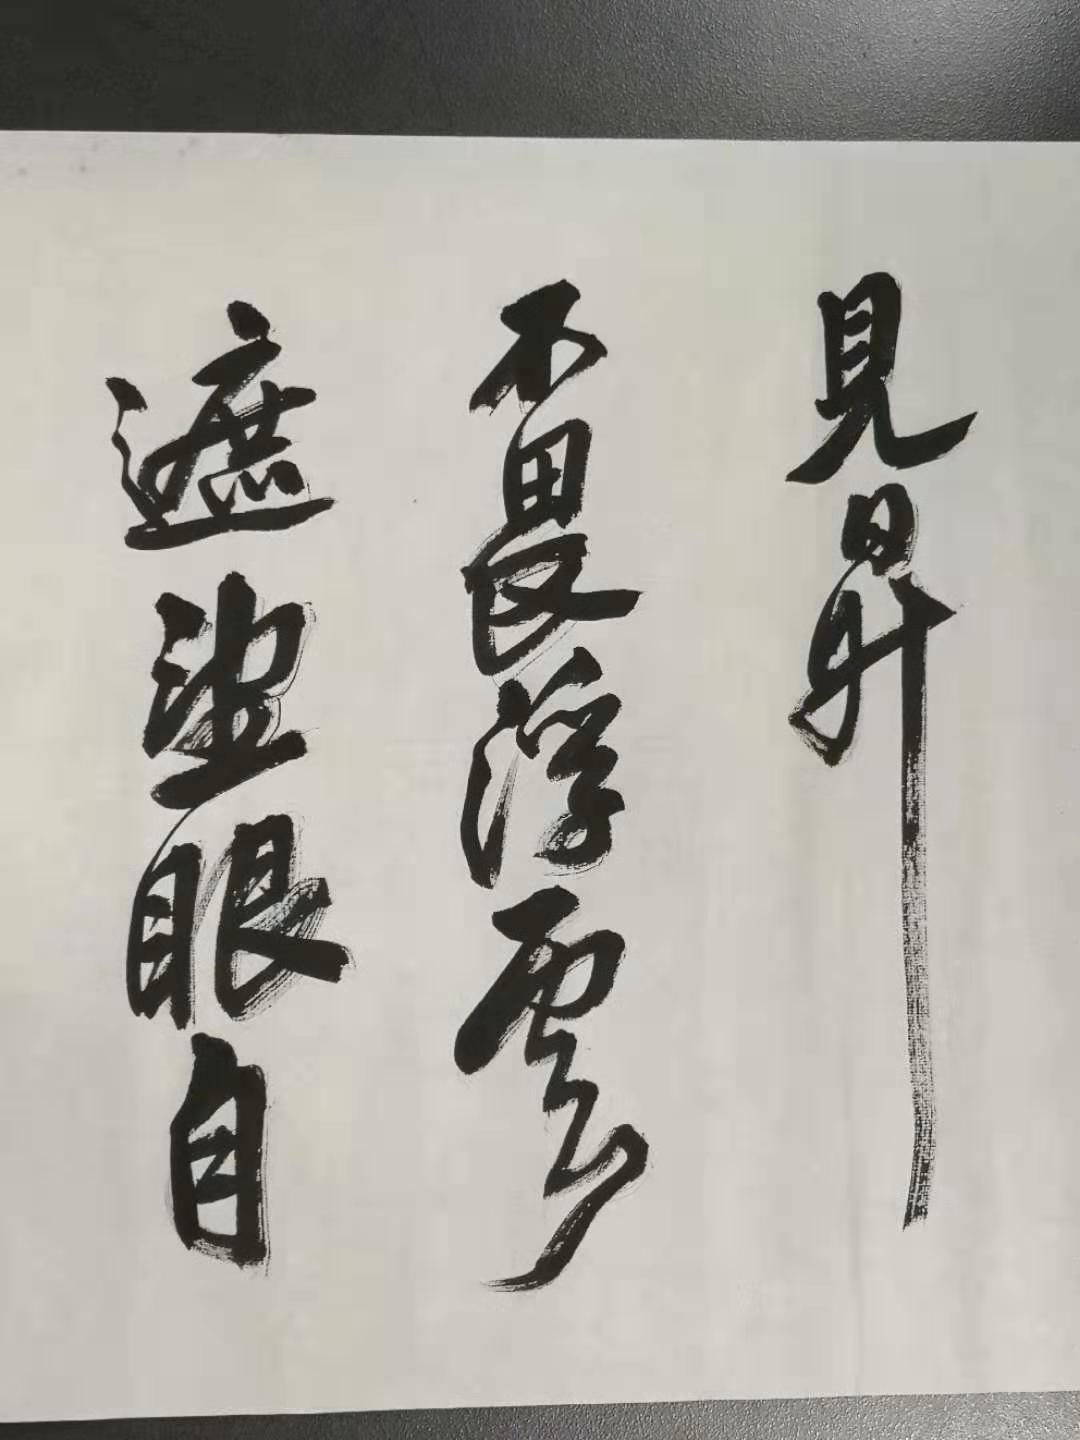 見日昇
不畏浮雲
遮望眼自